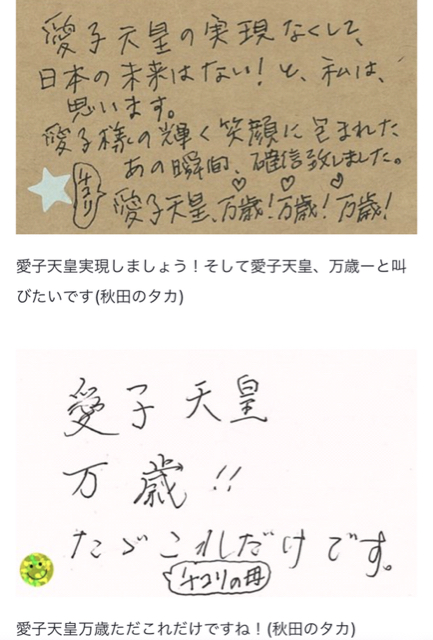 愛子天皇の実現なくして、
日本の未来はない！と、私は、
思います。
愛子様の輝く笑顔に包まれた
あの瞬間、確信致しました。
チコリ
愛子天皇、万歳！万歳！万歳！
愛子天皇実現しましょう！そして愛子天皇、万歳ーと叫
びたいです(秋田のタカ)
愛子天皇
万歳!!
たゞこれだけです。
チコリの母
愛子天皇万歳ただこれだけですね！(秋田のタカ)